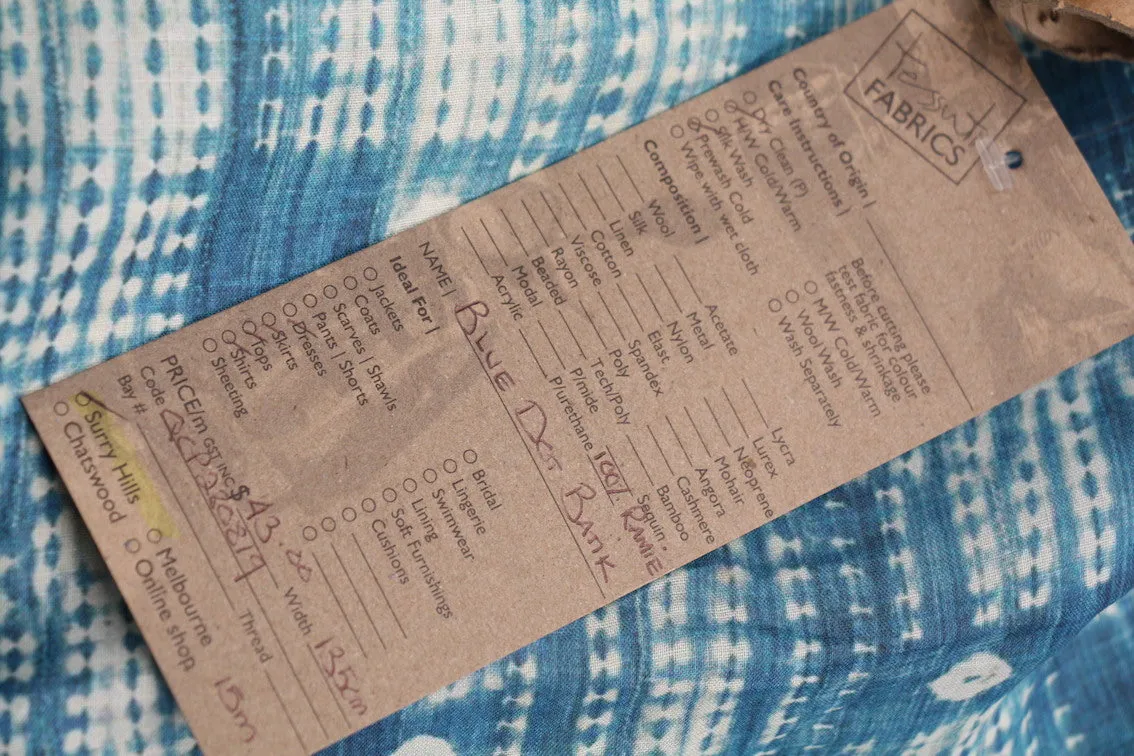 Tessuti
FABRICS
Country of Origin |
Care Instructions |
Dry Clean (P)
H/W Cold/Warm
Silk Wash
Prewash Cold
Wipe with wet cloth
Before cutting please
test fabric for colour
fastness & shrinkage
M/W Cold/Warm
Wool Wash
Wash Separately
Composition |
Wool
Silk
Linen
Cotton
Viscose
Rayon
Beaded
Modal
Acrylic
Acetate
Metal
Nylon
Elast
Spandex
Poly
Tech/Poly
P/mide
P/urethane
Lycra
Lurex
Neoprene
Mohair
Angora
Cashmere
Bamboo
Sequin
100% RAMIE
NAME | BLUE DOT BATIK
Ideal For |
Jackets
Coats
Scarves | Shawls
Pants | Shorts
Dresses
Skirts
Tops
Shirts
Sheeting
Bridal
Lingerie
Swimwear
Lining
Soft Furnishings
Cushions
PRICE/m GST INC $ 43.00 Width 135cm
Code
Bay # Thread 15m
Surry Hills
Chatswood
Melbourne
Online shop